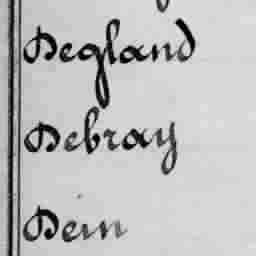 Degland
Debray
Dein